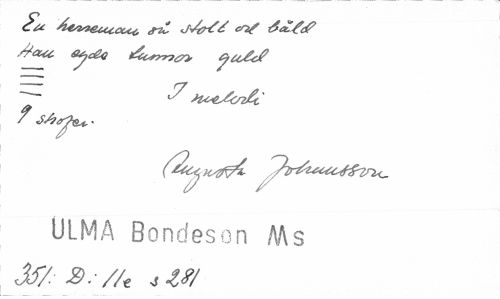 En herreman så stolt och båld
Han egde tunnor guld
I melodi
9 strofer.
Augusta Johansson
ULMA Bondeson Ms
351: D: 11e s 281